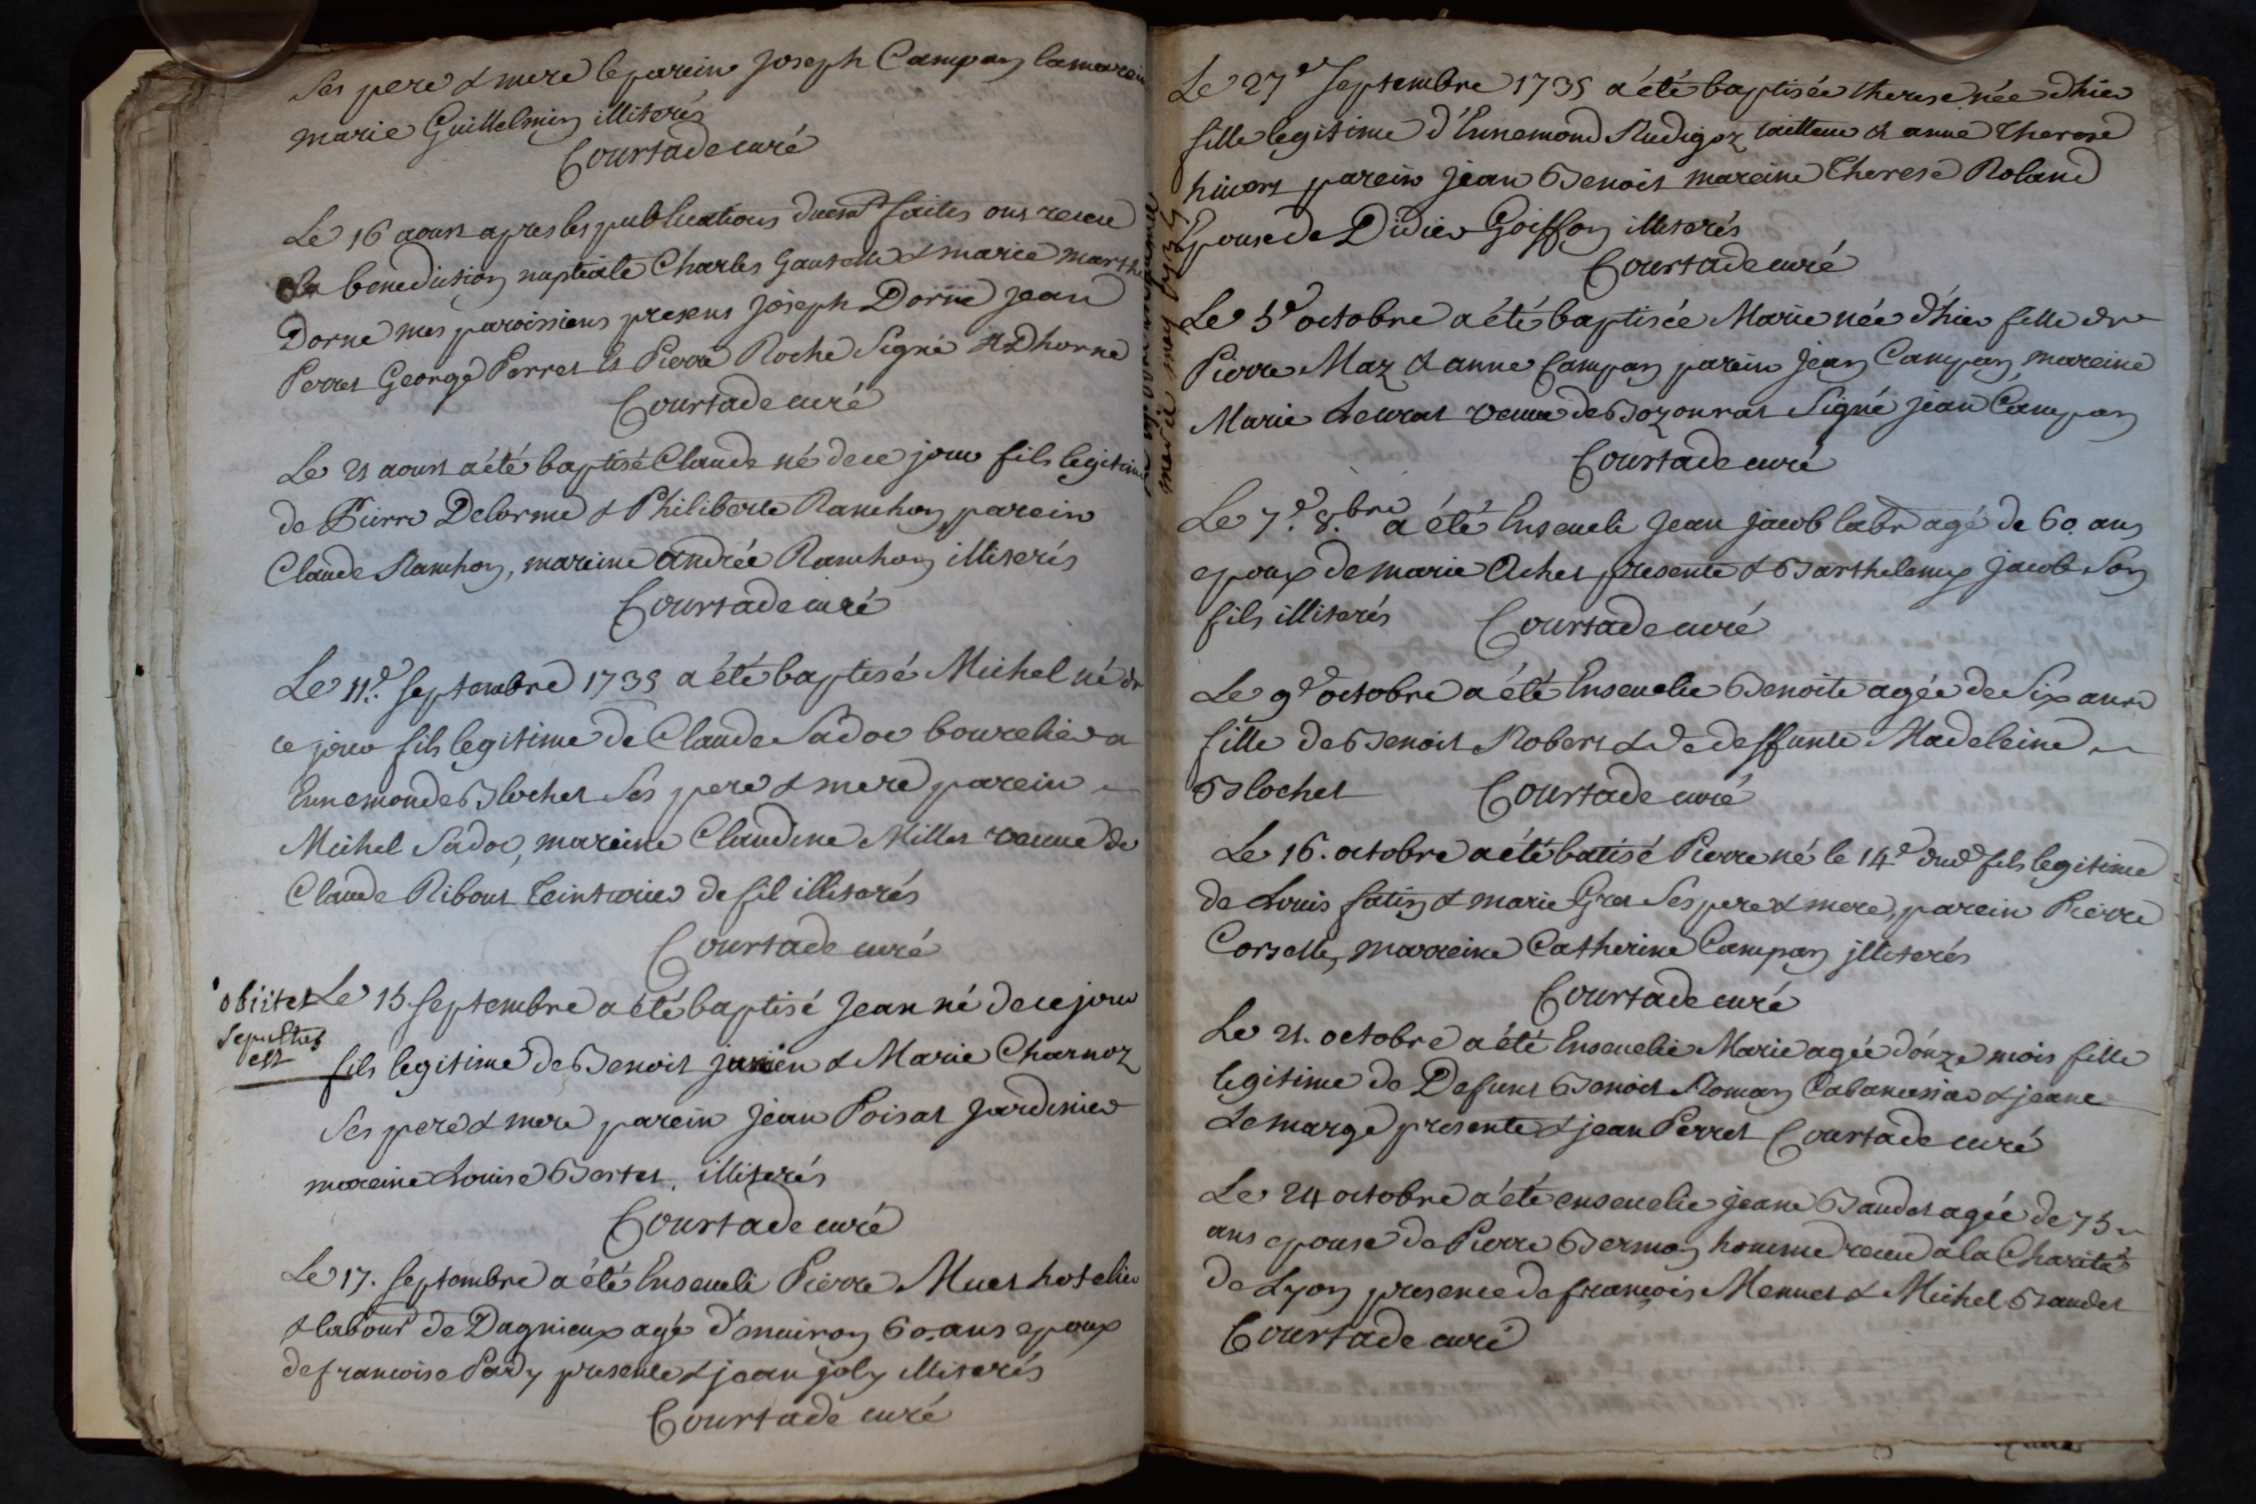 ses pere & mere le parein Joseph Campan la mareine
marie Guillelmin illiterés
Courtade curé
Le 16 aoust apres les publications duemt faites ont receu
la benediction nuptiale Charles Gautelle & marie marthe
Dorne mes paroissiens presens joseph Dorne jean
Perret George Perret & Pierre Roche Signé Dhorne
Courtade curé
Le 21 aoust a été baptisé Claude né de ce jour fils legitime
de Pierre Delorme & Philiberte Ranchon parein
Claude Ranchon, mareine andrée Ranchon illiterés
Courtade curé
Le 11.e septembre 1735 a été baptisé Michel né de
ce jour fils legitime de Claude Sadoc bourelier &
Ennemonde Blochet ses pere & mere parein
Michel Sadoc, mareine Claudine Millet veuve de
Claude Ribout teinturier de fil illiterés
Courtade curé
obiit et
sepultus
est
Le 15 septembre a été baptisé Jean né de ce jour
fils legitime de Benoit & Marie Charnoz
ses pere & mere parein Jean Poisat Jardinier
mareine Louise Bertet, illiterés
Courtade curé
Le 17. septembre a été Enseveli Pierre Muet hotelier
& labourr de Dagnieux agé d'enuiron 60. ans epoux
de francoise Pady presente & jean joly illiterés
Courtade curé
Le 27e Septembre 1735 a été baptisée therese née d'hier
fille legitime d'Ennemond Rudigoz tailleur & anne Therese
hivert parein Jean Benoit mareine Therese Roland
Epouse de Didier Goiffon illiterés
Courtade curé
Le 5e octobre a été baptisée Marie née d'hier fille de
Pierre Maz & anne Campan parein Jean Campan mareine
Marie veuve de Bozonnat Signé jean Campan
Courtade curé
Le 7.e 8.bre a été Enseveli Jean Jacob labr agé de 60. ans
epoux de marie Achet presente & Barthelemy Jacob son
fils illiterés Courtade curé
Le 9e octobre a été Ensevelie Benoite agée de Six ans
fille de Benoit Robert & de deffunte Madeleine
Blochet Courtade curé
Le 16. octobre a été batisé Pierre né le 14e dud fils legitime
de Louis fatin & marie Gret ses pere & mere, parein Pierre
Corselle, marreine Catherine Campan illiterés
Courtade curé
Le 21. octobre a été Ensevelie Marie agée d'onze mois fille
legitime de Defunt Benoit Roman & jeane
Lemarge presente & jean Perret Courtade curé
Le 24 octobre a été ensevelie jeane Baudet agée de 75
ans epouse de Pierre Bermon homme receu a la Charité
de Lyon presence de francois Mennet & Michel Baudet
Courtade curé